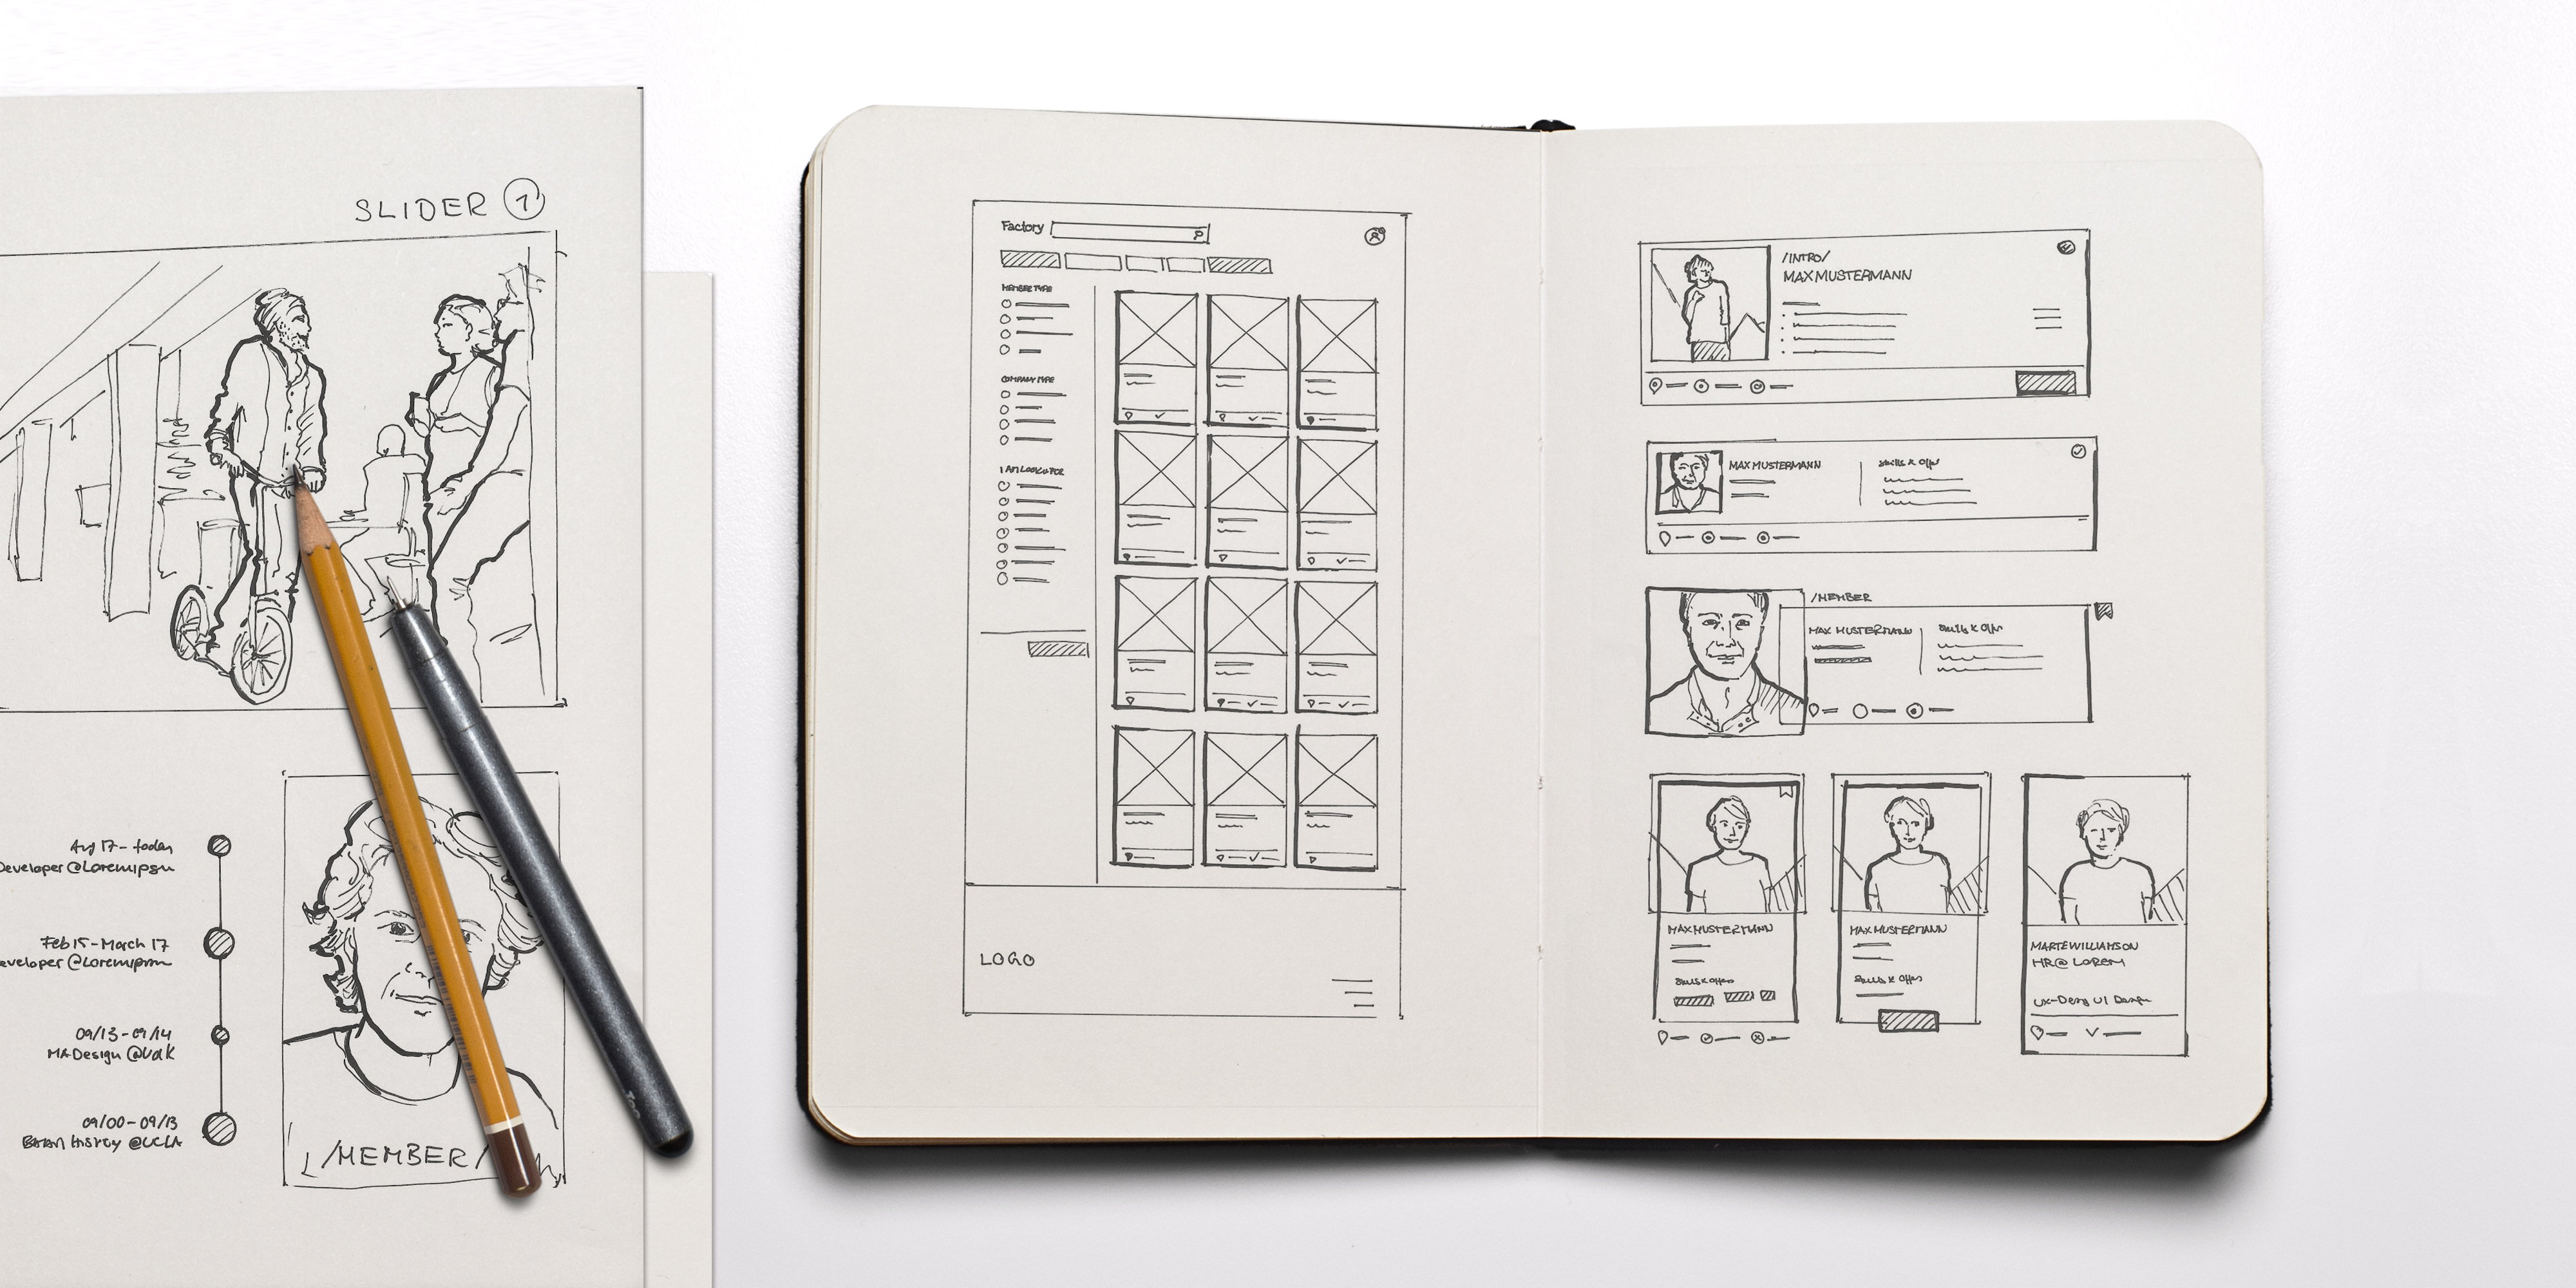 SLIDER 1
Aug 17 - today
Developer @Loremipsm
Feb 15 - March 17
eveloper @Loremipsm
09/13 - 09/14
MA Design @UdK
09/00 - 09/13
@UCLA
/MEMBER/
Factory
MEMBER TYPE
COMPANY TYPE
I AM LOOKING FOR
LOGO
/INTRO/
MAX MUSTERMANN
MAX MUSTERMANN
Skills & Offer
/MEMBER
MAX MUSTERMANN
Skills & Offer
MAX MUSTERMANN
Skills & Offers
MAX MUSTERMANN
Skills & Offers
MARTE WILLIAMSON
HR@ LOREM
UX-Desg UI Design